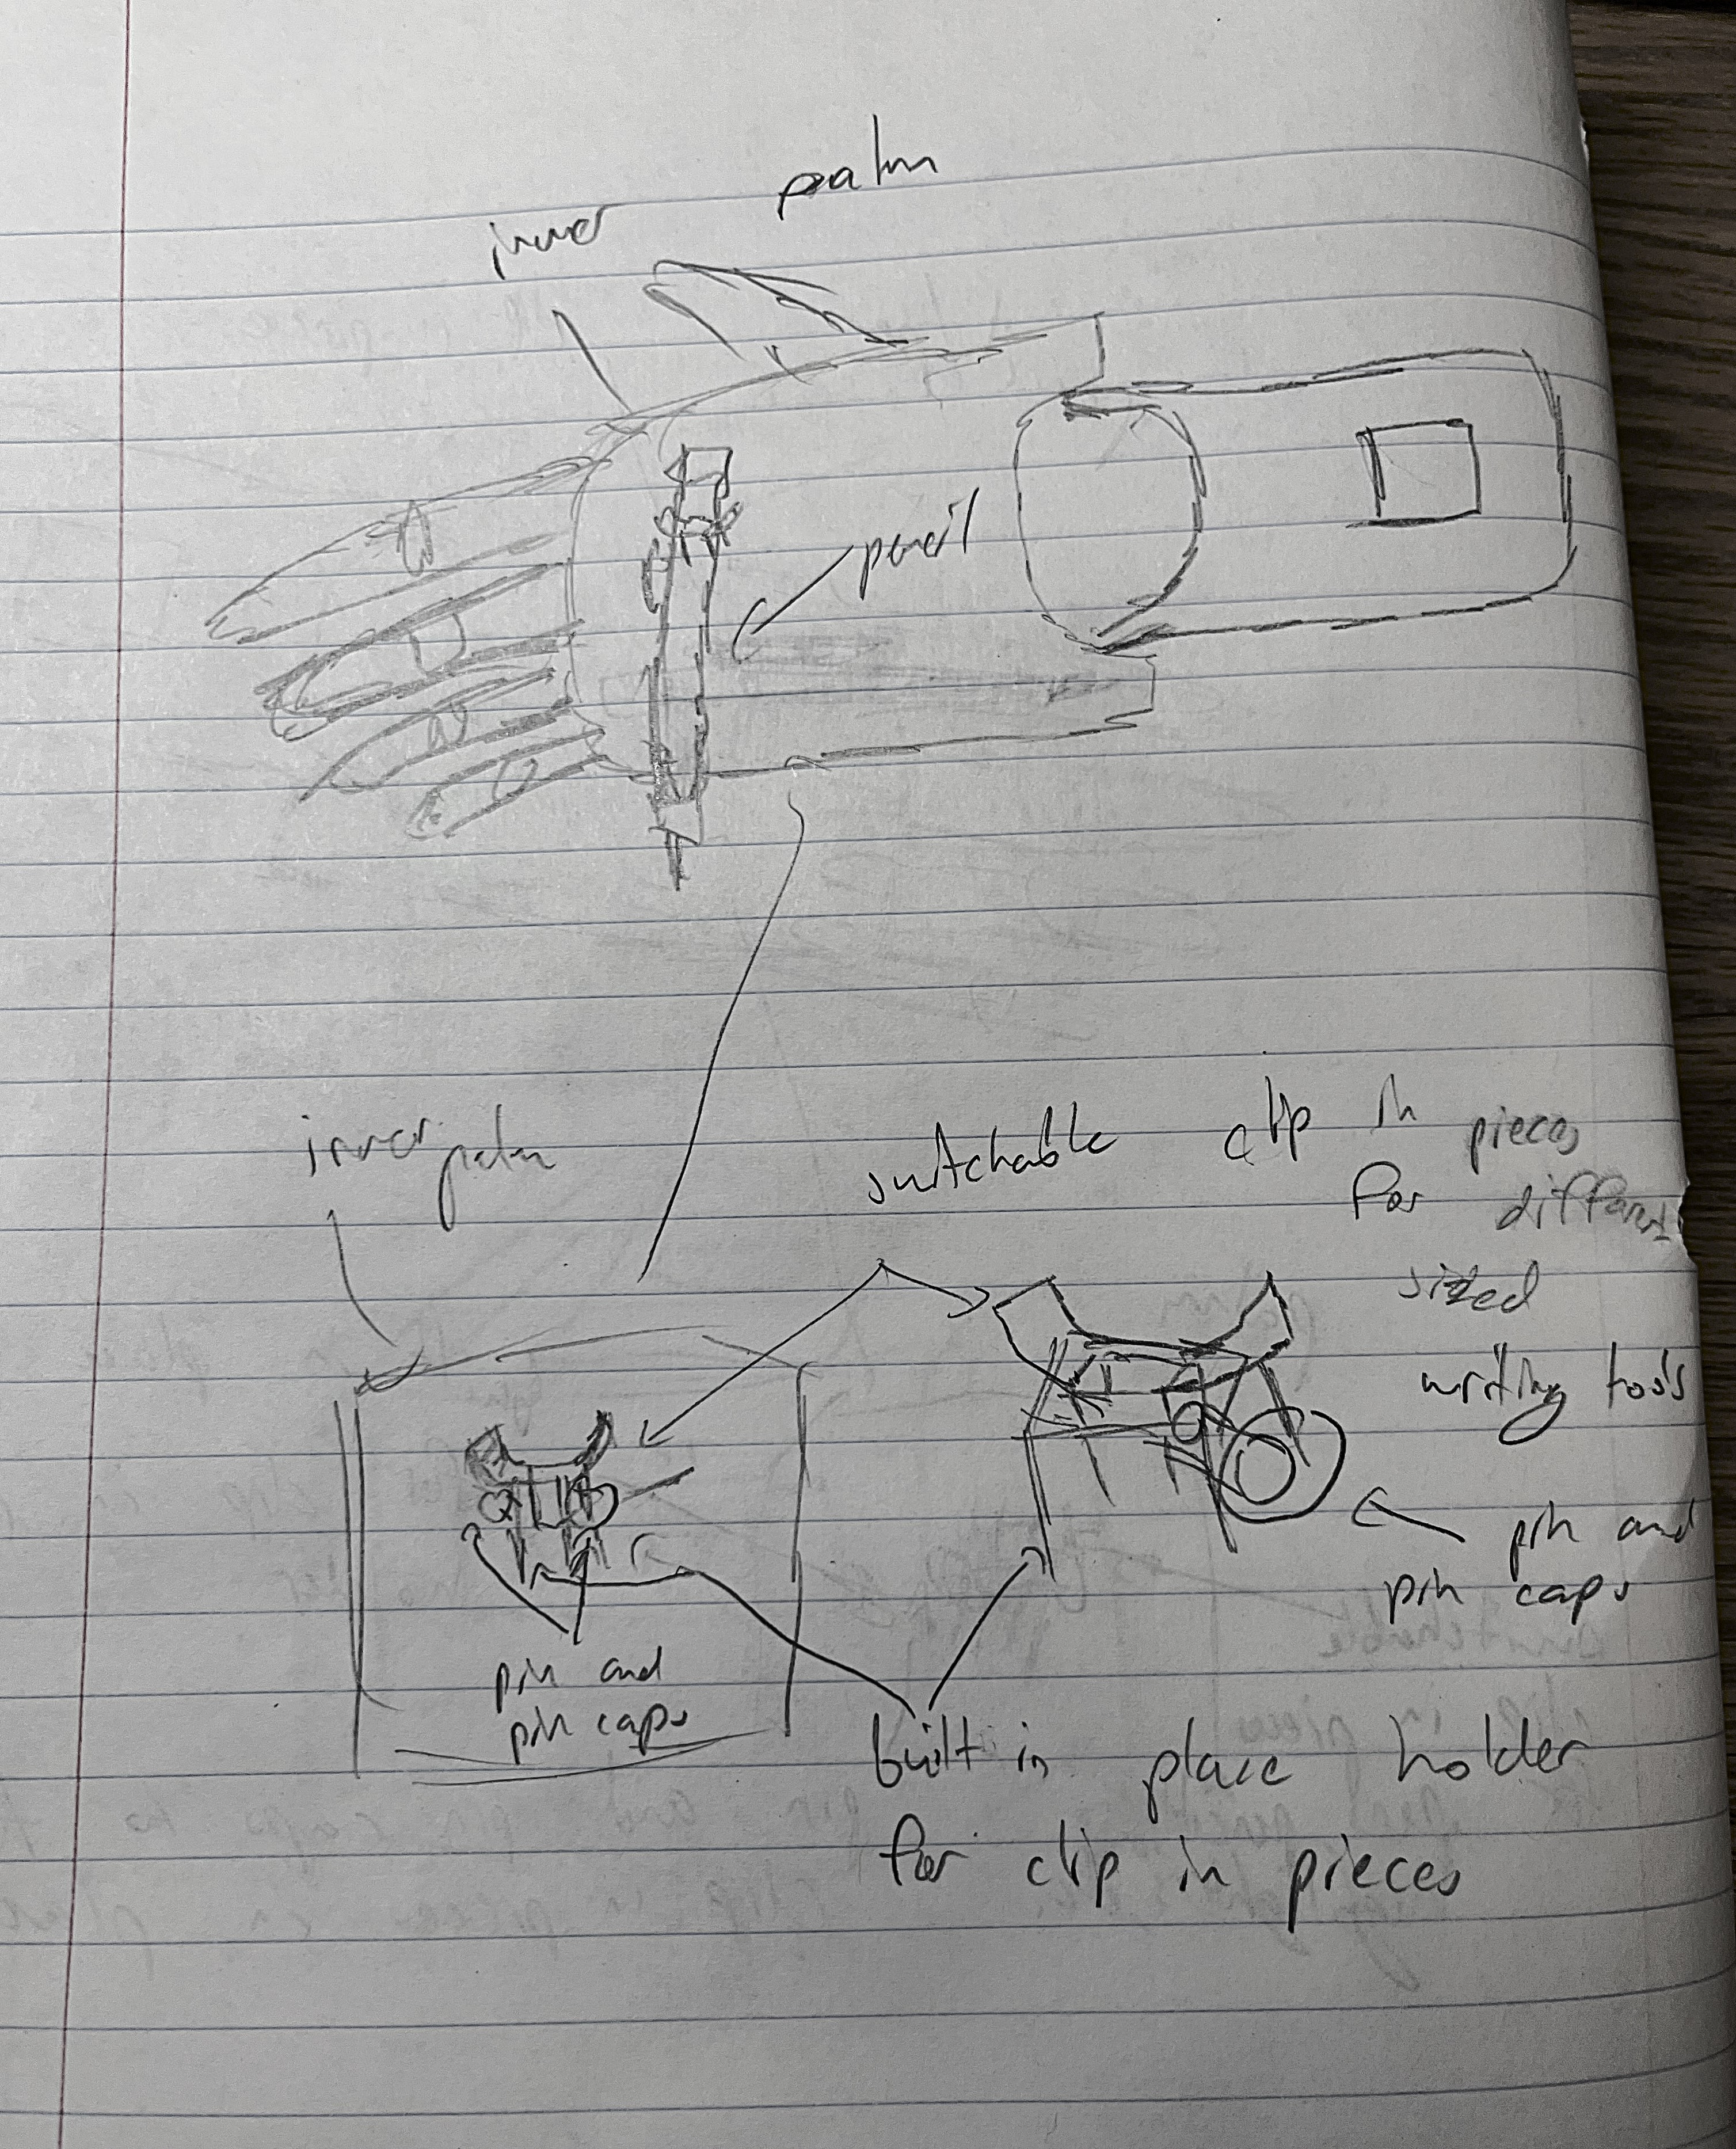 inner palm
pencil
inner palm
switchable clip in pieces
for different
sized
writing tools
pin and
pin caps
pin and
pin caps
built in place holder
for clip in pieces